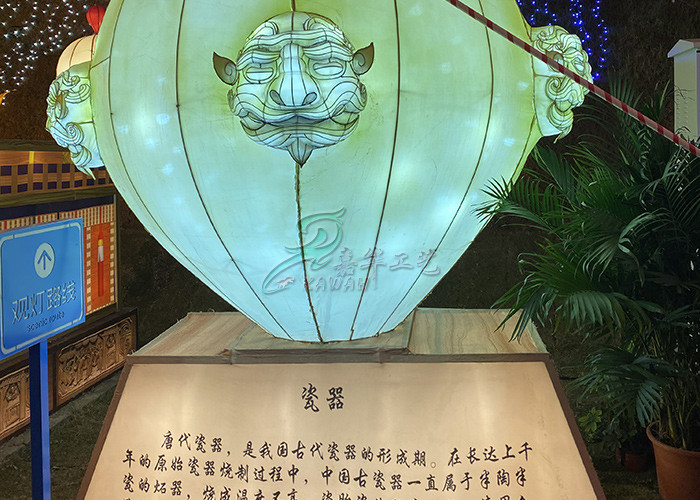 嘉华工艺
KAWAH
观灯路线
scenic route
瓷器
唐代瓷器，是我国古代瓷器的形成期。在长达上千
年的原始瓷器烧制过程中，中国古瓷器一直属于半陶半
瓷的炻器，烧成温度不高，瓷胎瓷